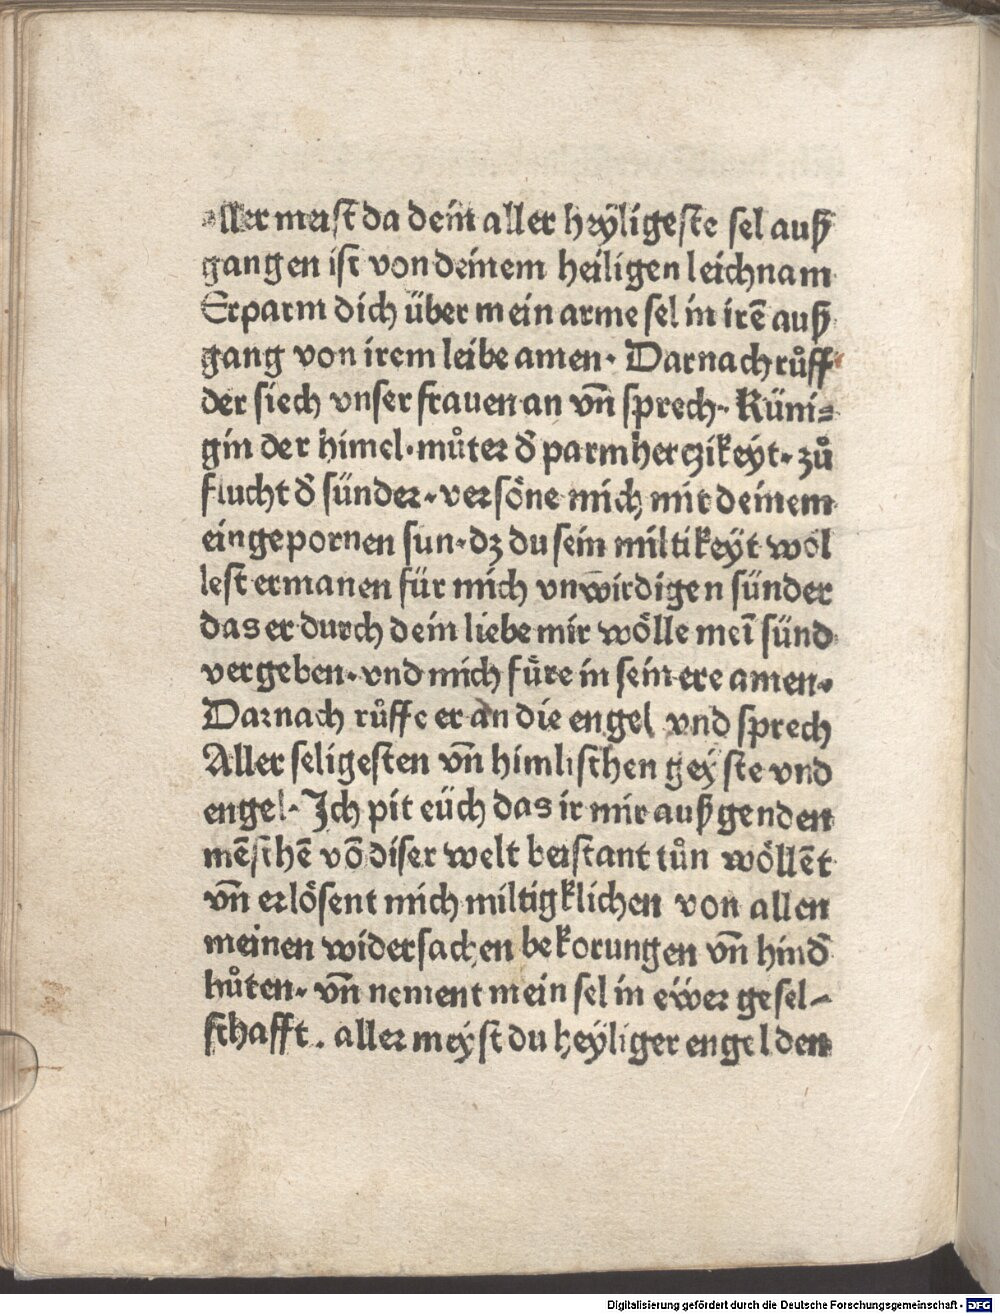 aller meist da dein aller heyligeste sel auß
gangen ist von deinem heiligen leichnam
Erparm dich über mein arme sel in irē auß
gang von irem leibe amen· Darnach růff
der siech vnser frauen an vn̄ sprech· Küni⸗
gin der himel·můter d̄ parmherczikeyt·zů
flucht d̄ sünder·versöne mich mit deinem
eingepornen sun·dz du sein miltikeyt wöl
lest ermanen für mich vnwirdigen sünder
das er durch dein liebe mir wölle meī sünd
vergeben·vnd mich füre in sein ere amen·
Darnach růffe er an die engel vnd sprech
Aller seligesten vn̄ himlischen geyste vnd
engel·Ich pit eüch das ir mir außgenden
mēschē vō diser welt beistant tůn wöllēt
vn̄ erlösent mich miltigklichen von allen
meinen widersachen bekorungen vn̄ hind̄
hůten·vn̄ nement mein sel in ewer gesel-
schafft. aller meyst du heyliger engel den
Digitalisierung gefördert durch die Deutsche Forschungsgemeinschaft - DFG